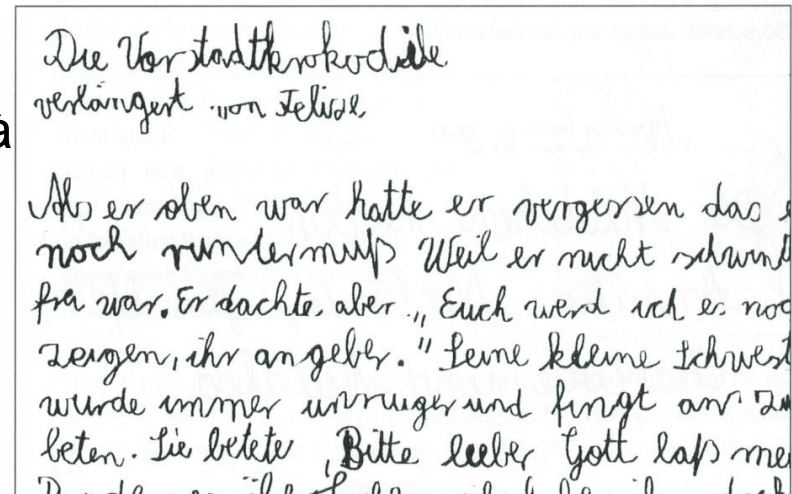 Die Vorstadtkrokodile
verlängert von Felise
Als er oben war hatte er vergessen das e
noch runtermuß Weil er nicht schwind
frei war. Er dachte aber „Euch werd ich es noc
zeigen, ihr angeber." Seine kleine Schwest
wurde immer unruiger und fingt an zu
beten. Sie betete „Bitte lieber Gott laß mei